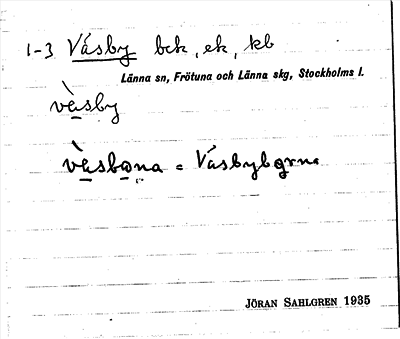 1-3 Väsby bck, ek, kb
Länna sn, Frötuna och Länna skg, Stockholms l.
vàsby
vàsbona = Väsbyborna
JÖRAN SAHLGREN 1935